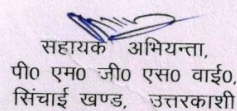 सहायक अभियन्ता,
पी0 एम0 जी0 एस0 वाई0,
सिंचाई खण्ड, उत्तरकाशी